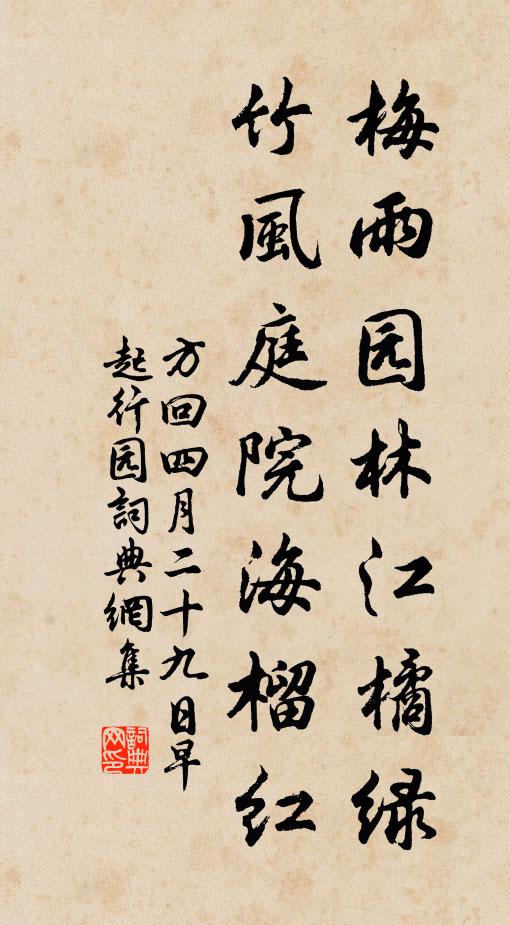 梅雨园林江橘绿
竹風庭院海榴红
方回四月二十九日早
起行园詞典網集
詞典网印